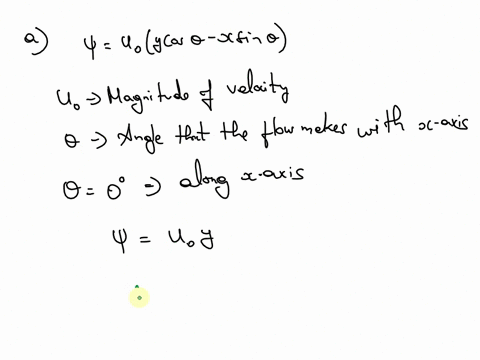 a) ψ = u₀(y cos θ - x sin θ)
u₀ → Magnitude of velocity
θ → Angle that the flow makes with x-axis
θ = 0° ⇒ along x-axis
ψ = u₀ y